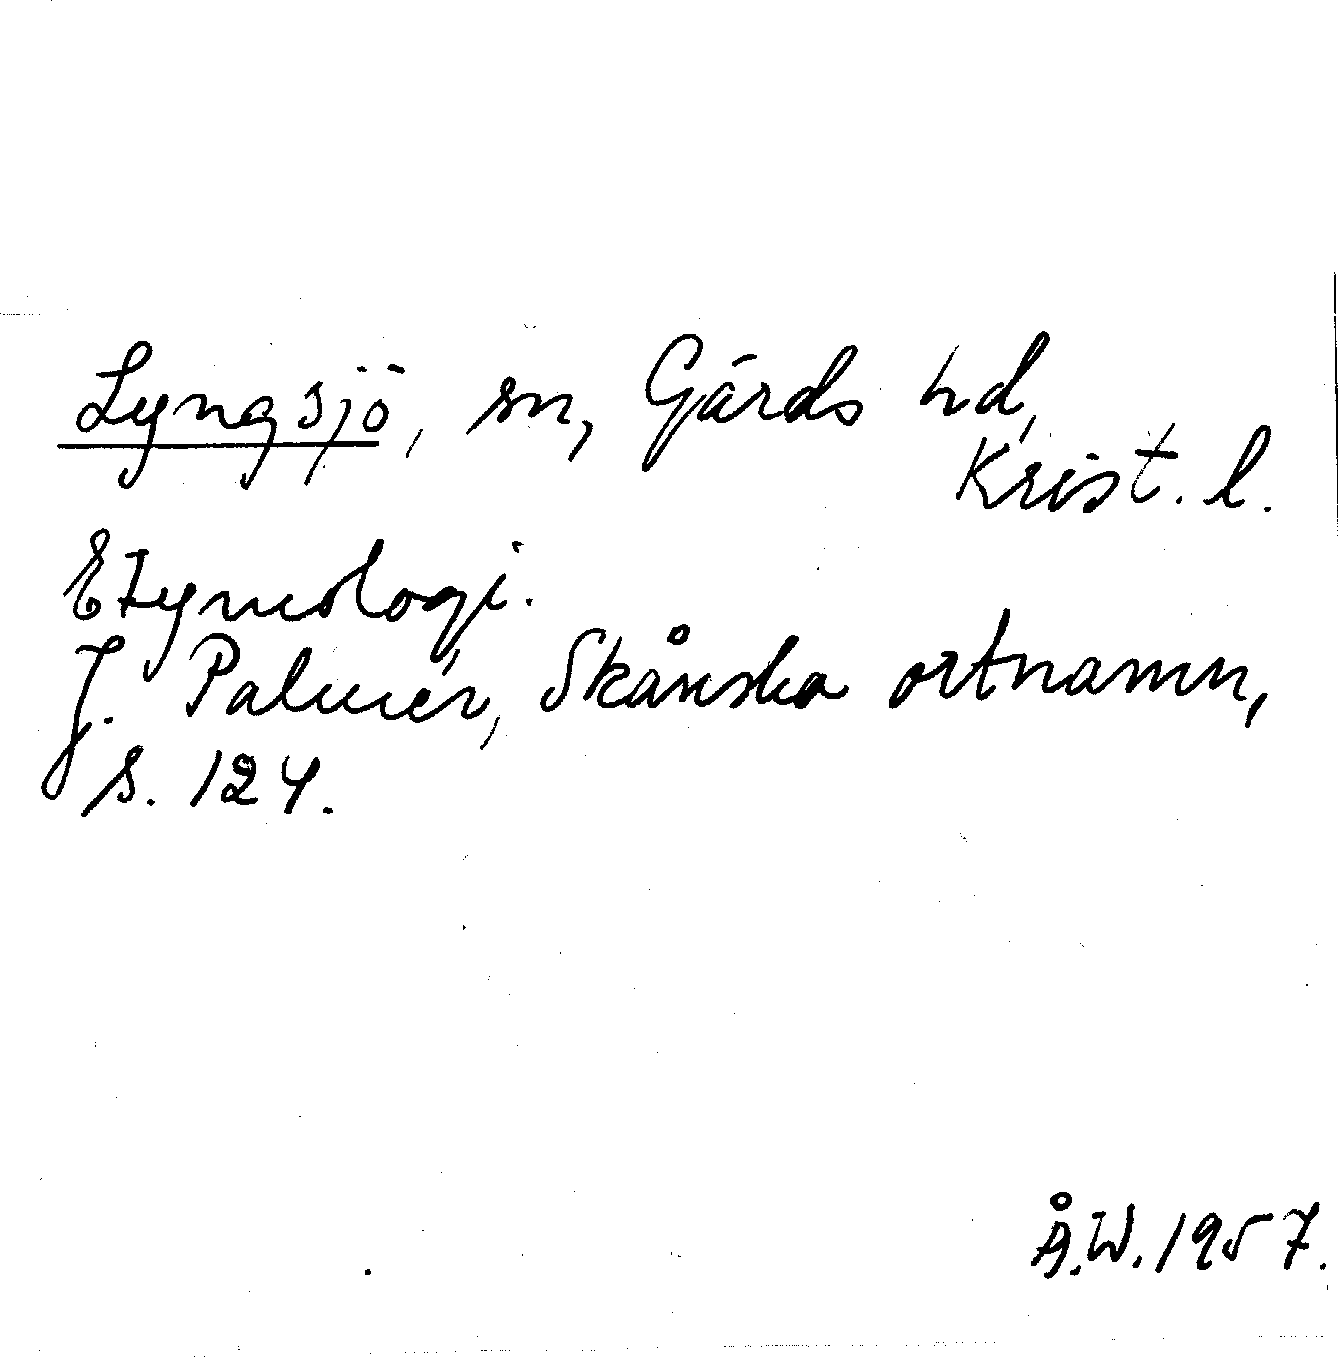 Lyngsjö, sn, Gärds hd,
Krist. l.
Etymologi.
J. Palmér, Skånska ortnamn,
s. 124.
Å.W. 1957.